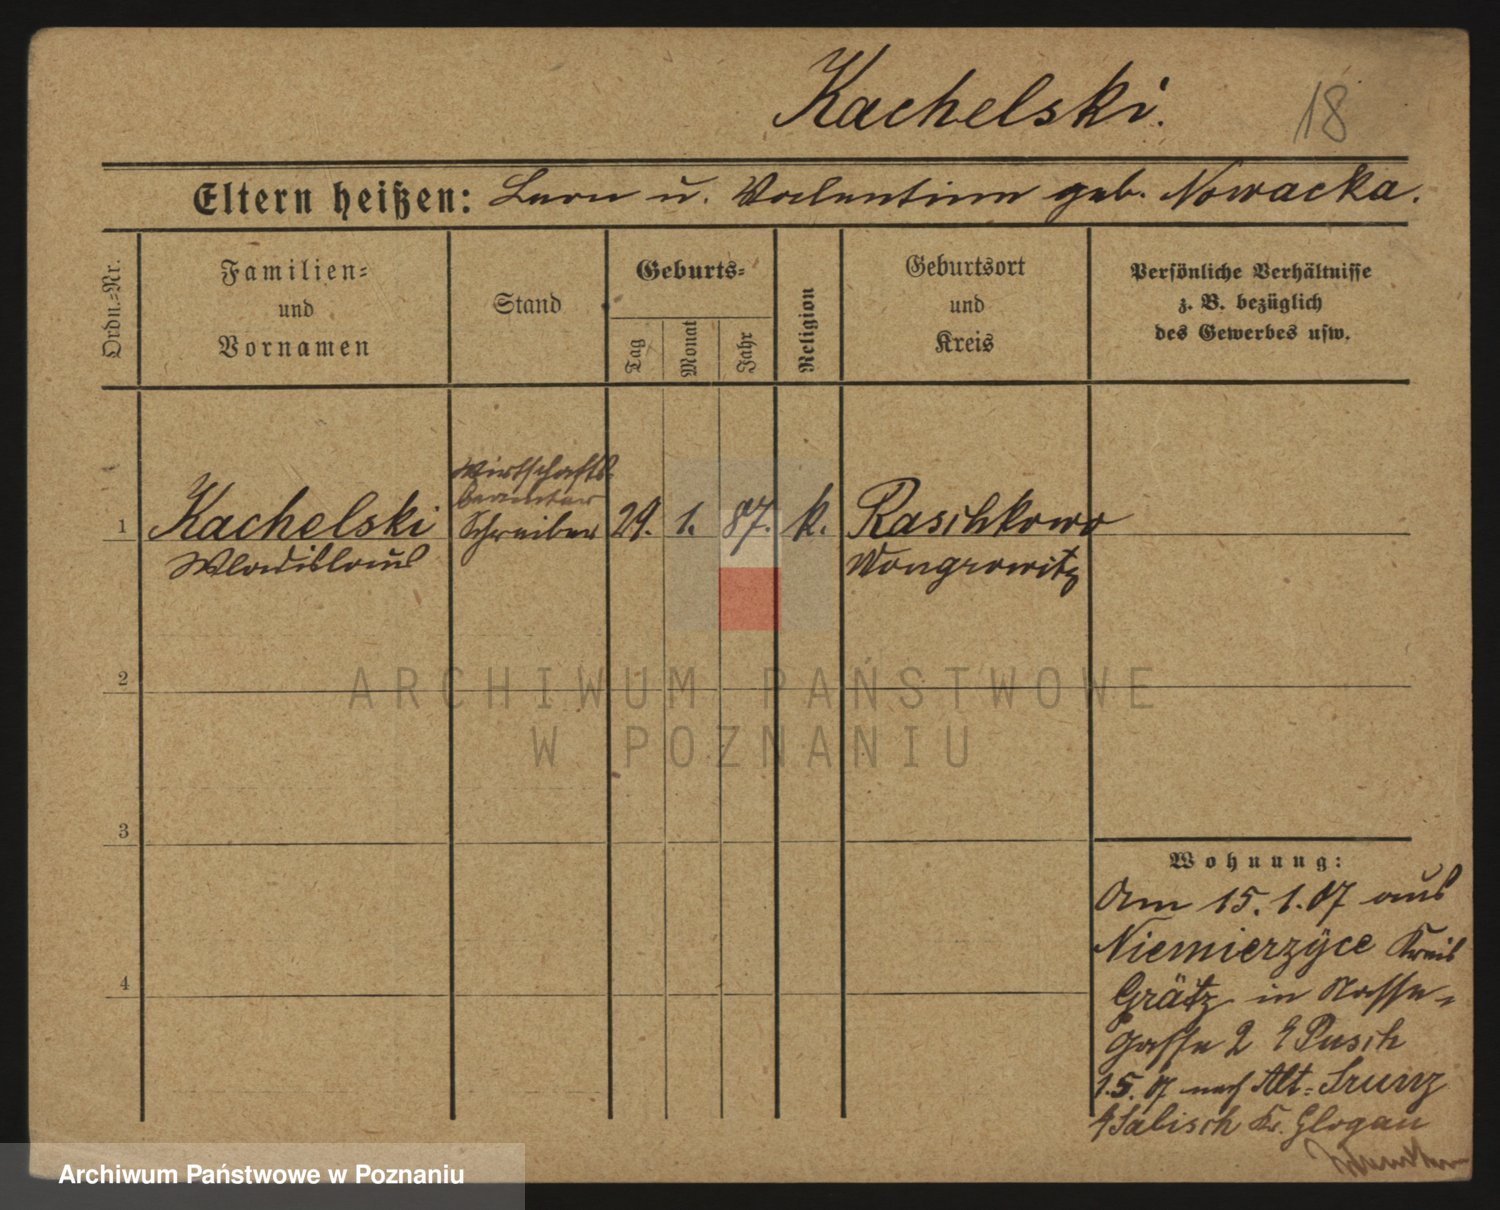 Kachelski.
18
Eltern heißen: Leon u. Valentine geb. Nowacka.
Ordn.-Nr.
Familien-
und
Vornamen
Stand
Geburts-
Tag
Monat
Jahr
Religion
Geburtsort
und
Kreis
Persönliche Verhältnisse
z. B. bezüglich
des Gewerbes usw.
Wirtschafts-
beamter
1 Kachelski Schreiber 29. 1. 87. k. Raschkowo
Wladislaus Wongrowitz
2
3
4
Wohnung:
Am 15.1.07 aus
Niemierzÿce Kreis
Grätz in Nasse-
gasse 2 Pusch
1.5.07 nach Alt-
Salisch Kr. Glogau
ARCHIWUM PAŃSTWOWE
W POZNANIU
Archiwum Państwowe w Poznaniu